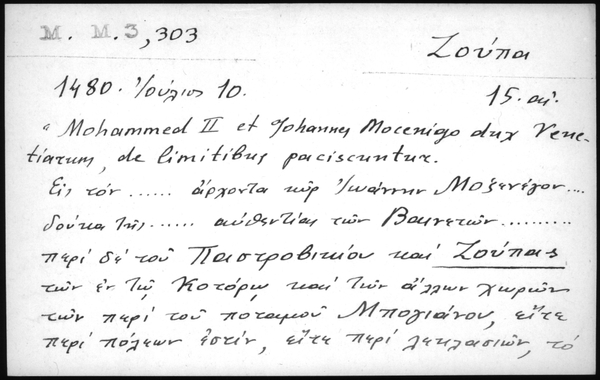 M. M. 3, 303
Ζούπα
1480. Ἰούλιος 10.
15. αἰ.
"Mohammed II et Johannes Mocenigo dux Vene-
tiarum, de limitibus paciscuntur.
Εἰς τόν ...... ἄρχοντα κῦρ Ἰωάννην Μοζενέγον....
δούκα τῆς ...... αὐθεντίας τῶν Βενετῶν .........
περί δέ τοῦ Παστροβικίου καί Ζούπας
τῶν ἐν τῷ Κοτόρῳ καί τῶν ἄλλων χωρῶν
τῶν περί τοῦ ποταμοῦ Μπογιάνου, εἴτε
περί πόλεων ἐστίν, εἴτε περί λεηλασιῶν, τό